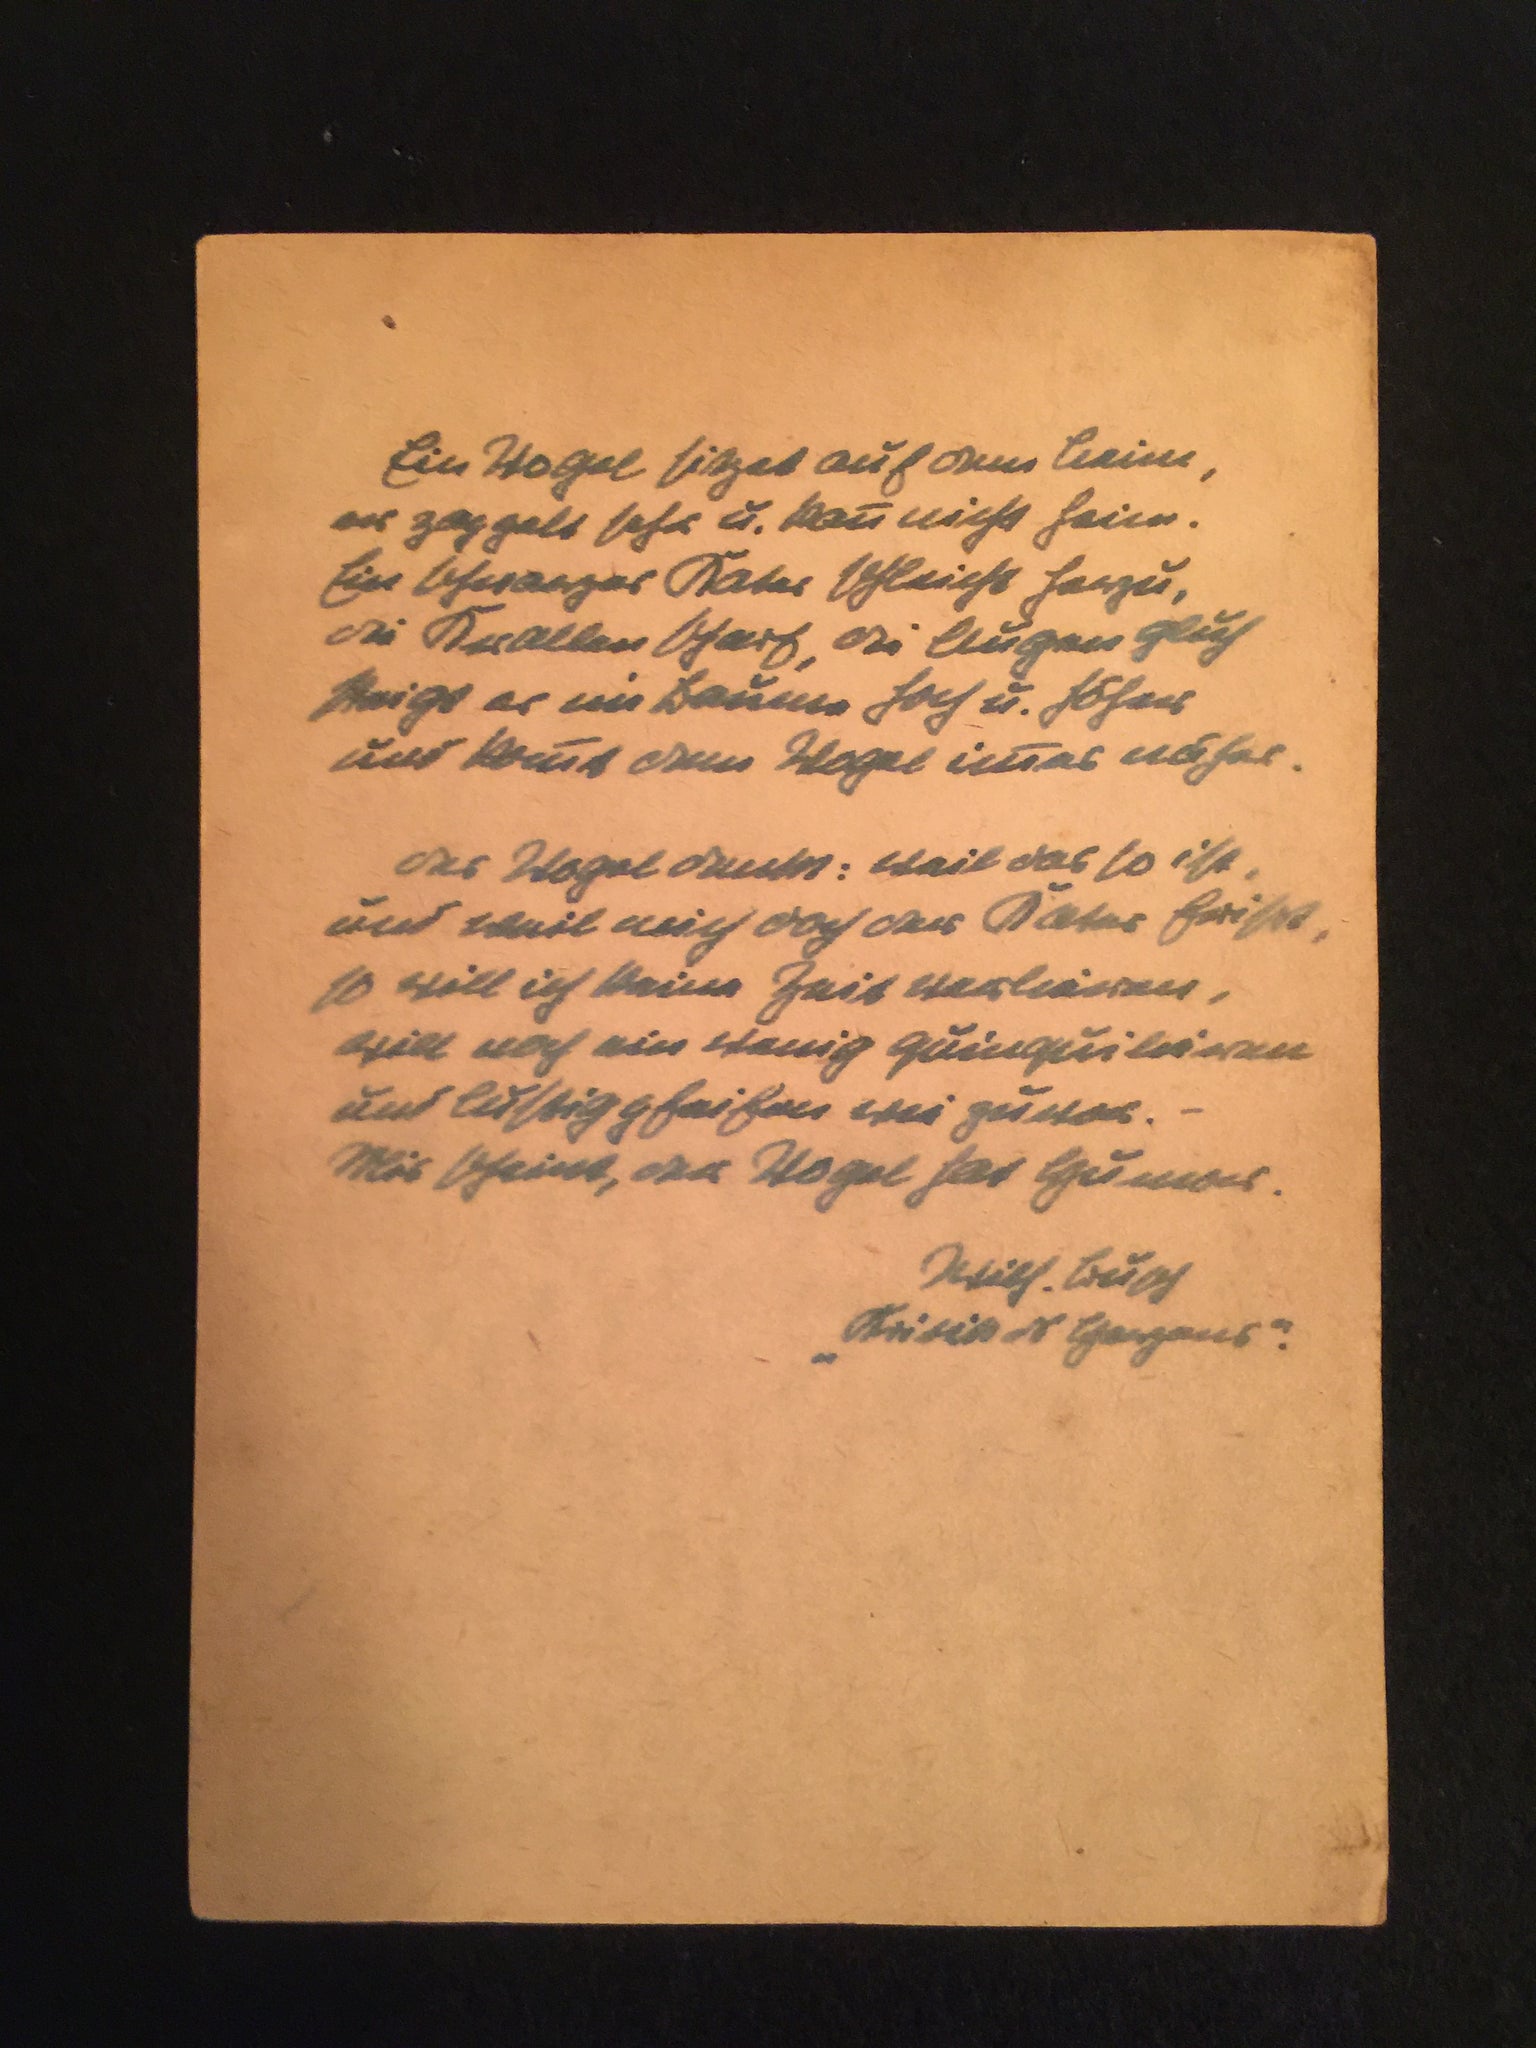 Ein Vogel sitzet auf dem Leim,
er zappelt sehr u. kan̄ nicht heim.
Ein schwarzer Kater schleicht herzu,
die Krallen scharf, die Augen gluh
steigt er im Baume hoch u. höher
und kom̄t dem Vogel im̄er näher.
der Vogel denkt: weil das so ist,
und weil mich doch der Kater frisst,
so will ich keine Zeit verlieren,
will noch ein wenig quinquilieren
und lustig pfeifen wie zuvor. –
Mir scheint, der Vogel hat Humor.
Wilh. Busch
„Kritik d Herzens".